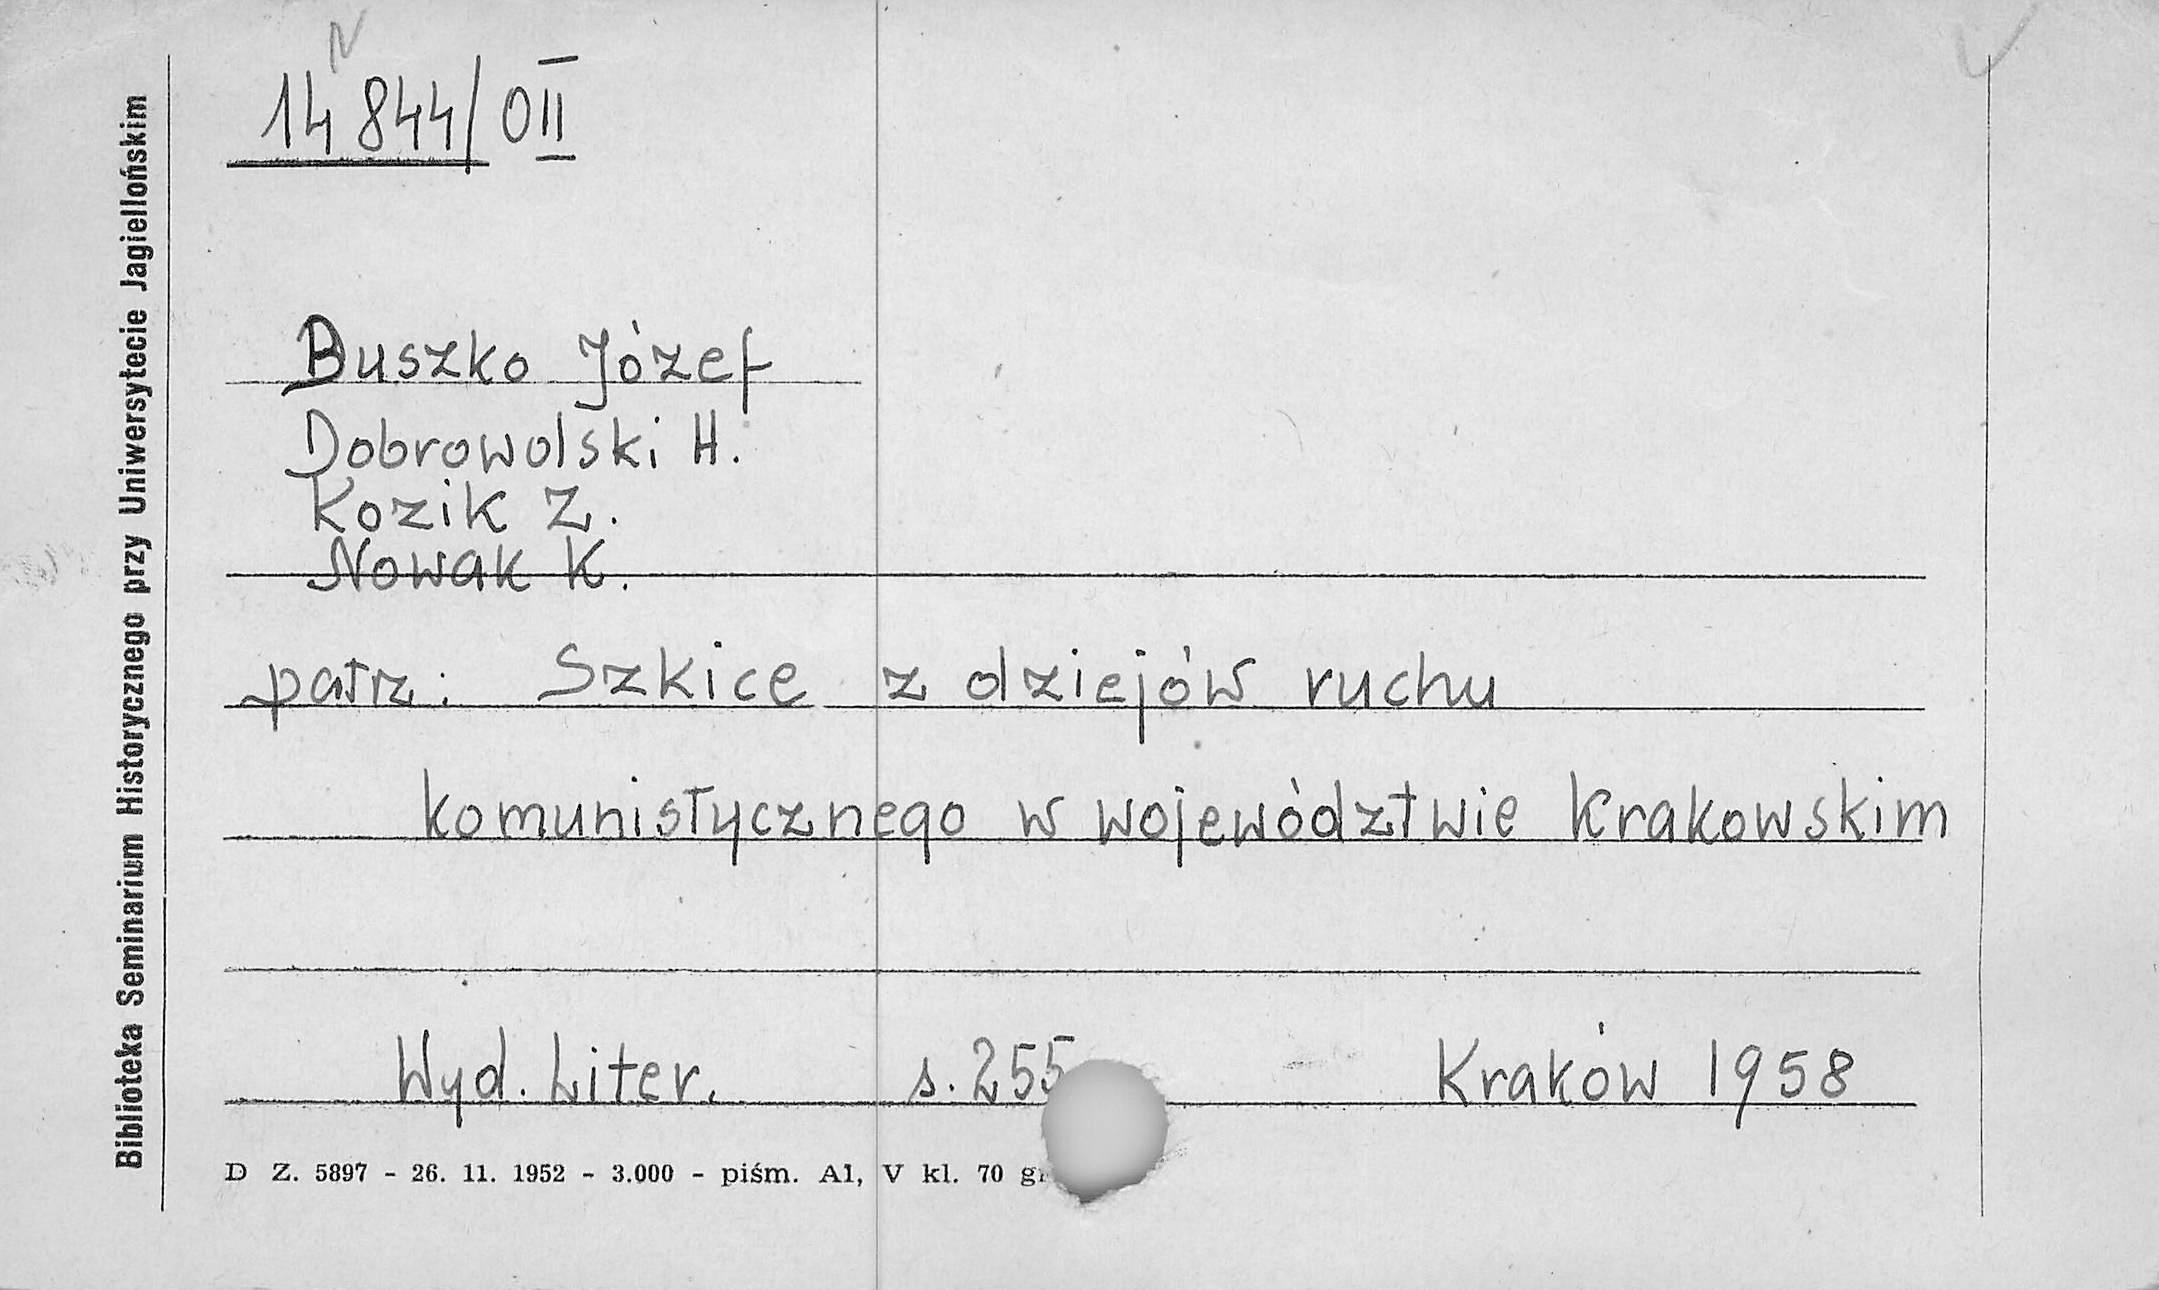 N
14 844/O II
Buszko Józef
Dobrowolski H.
Kozik Z.
Nowak K.
patrz: Szkice z dziejów ruchu
komunistycznego w województwie Krakowskim
Wyd. Liter. s. 255 Kraków 1958
D Z. 5897 - 26. 11. 1952 - 3.000 - piśm. A1, V kl. 70
Biblioteka Seminarium Historycznego przy Uniwersytecie Jagiellońskim